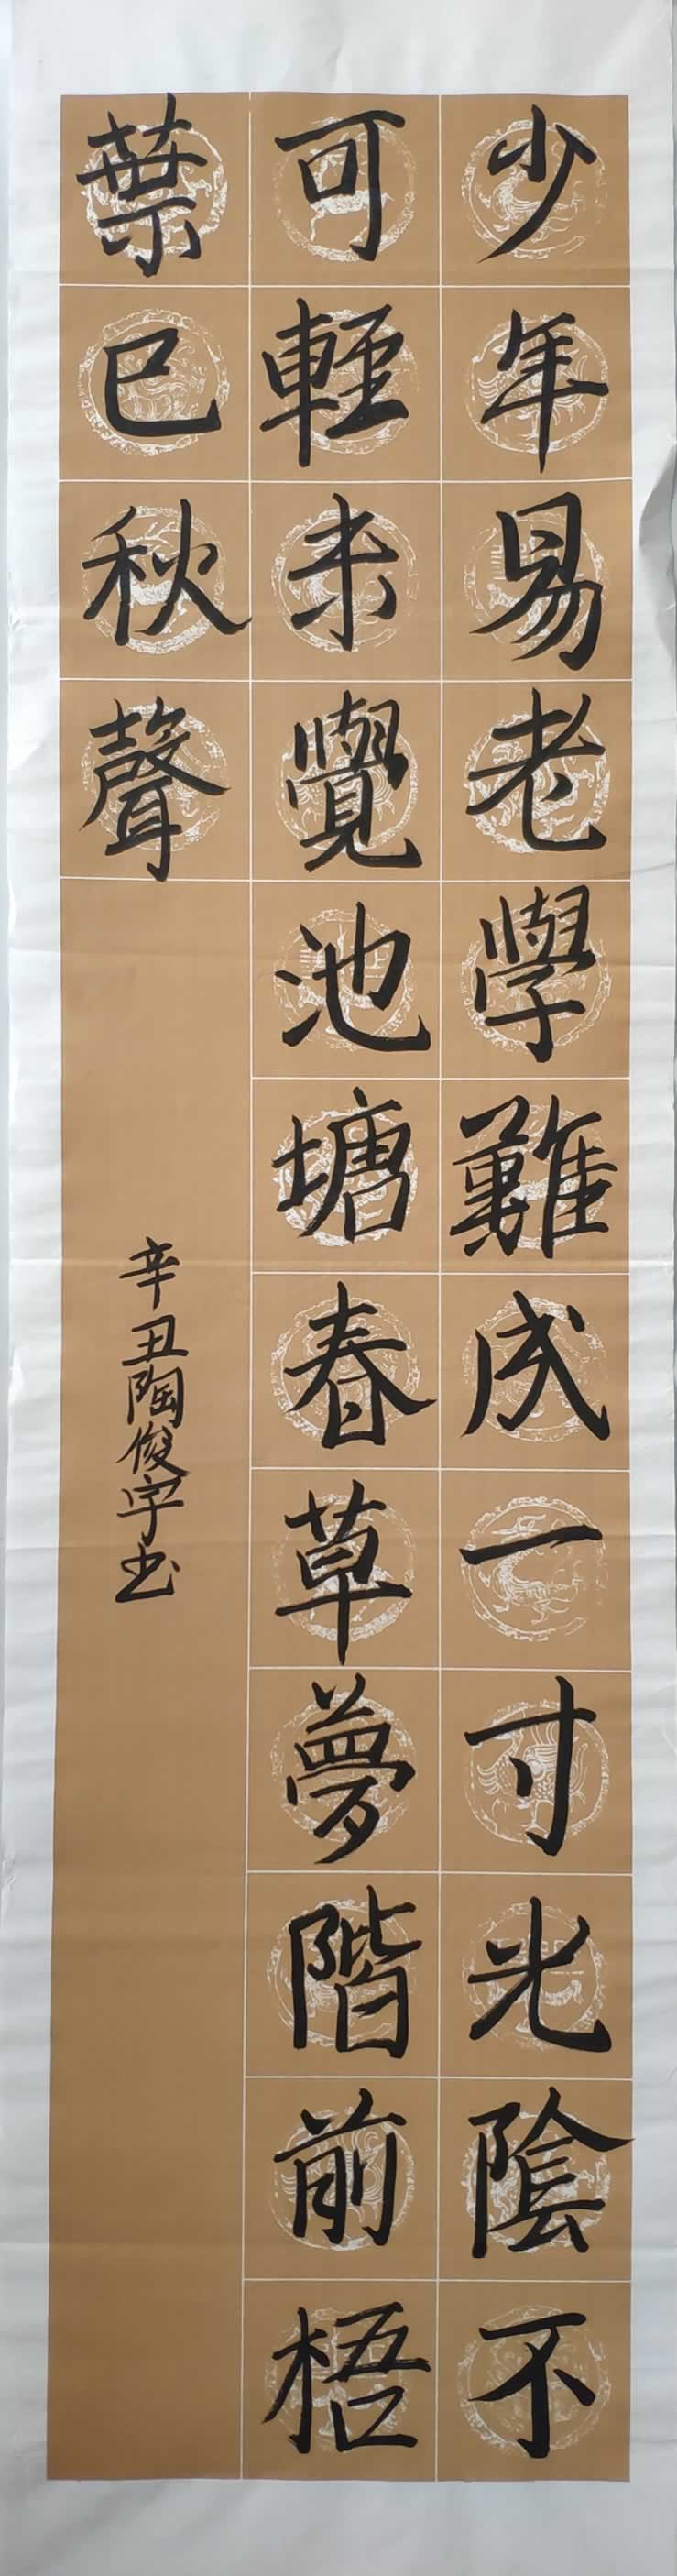 少年易老學難成一寸光陰不
可輕未覺池塘春草夢階前梧
葉已秋聲
辛丑陶俊宇书